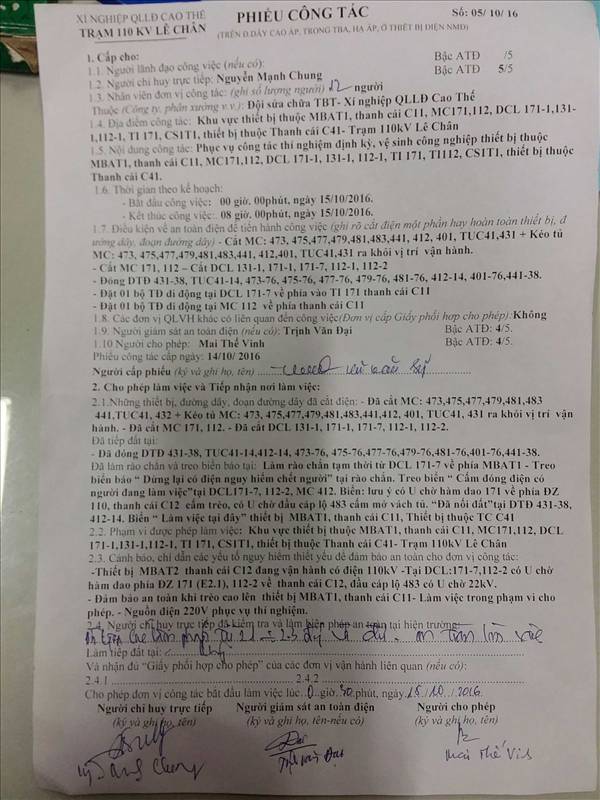 XÍ NGHIỆP QLLĐ CAO THẾ
TRẠM 110 KV LÊ CHÂN
PHIẾU CÔNG TÁC
Số: 05/ 10/ 16
(TRÊN Đ.DÂY CAO ÁP, TRONG TBA, HẠ ÁP, Ở THIẾT BỊ ĐIỆN NMĐ)
1. Cấp cho:
1.1. Người lãnh đạo công việc (nếu có): Bậc ATĐ /5
1.2. Người chỉ huy trực tiếp: Nguyễn Mạnh Chung Bậc ATĐ 5/5
1.3. Nhân viên đơn vị công tác: (ghi số lượng người) 12 người
Thuộc (Công ty, phân xưởng v.v.): Đội sửa chữa TBT- Xí nghiệp QLLĐ Cao Thế
1.4. Địa điểm công tác: Khu vực thiết bị thuộc MBAT1, thanh cái C11, MC171,112, DCL 171-1,131-
1,112-1, TI 171, CS1T1, thiết bị thuộc Thanh cái C41- Trạm 110kV Lê Chân
1.5. Nội dung công tác: Phục vụ công tác thí nghiệm định kỳ, vệ sinh công nghiệp thiết bị thuộc
MBAT1, thanh cái C11, MC171,112, DCL 171-1, 131-1, 112-1, TI 171, TI112, CS1T1, thiết bị thuộc
Thanh cái C41.
1.6. Thời gian theo kế hoạch:
- Bắt đầu công việc: 00 giờ. 00phút, ngày 15/10/2016.
- Kết thúc công việc:. 08 giờ. 00phút, ngày 15/10/2016.
1.7. Điều kiện về an toàn điện để tiến hành công việc (ghi rõ cắt điện một phần hay hoàn toàn thiết bị, đ
ường dây, đoạn đường dây) - Cắt MC: 473, 475,477,479,481,483,441, 412, 401, TUC41,431 + Kéo tủ
MC: 473, 475,477,479,481,483,441, 412,401, TUC41,431 ra khỏi vị trí vận hành.
- Cắt MC 171, 112 – Cắt DCL 131-1, 171-1, 171-7, 112-1, 112-2
- Đóng DTĐ 431-38, TUC41-14, 473-76, 475-76, 477-76, 479-76, 481-76, 412-14, 401-76,441-38.
- Đặt 01 bộ TĐ di động tại DCL 171-7 về phía vào TI 171 thanh cái C11
- Đặt 01 bộ TĐ di động tại MC 112 về phía thanh cái C11
1.8. Các đơn vị QLVH có liên quan đến công việc(Đơn vị cấp Giấy phối hợp cho phép):Không
1.9. Người giám sát an toàn điện (nếu có): Trịnh Văn Đại Bậc ATĐ: 4/5.
1.10 Người cho phép: Mai Thế Vinh Bậc ATĐ: 4/5.
Phiếu công tác cấp ngày: 14/10/ 2016
Người cấp phiếu (ký và ghi họ, tên)
2. Cho phép làm việc và Tiếp nhận nơi làm việc:
2.1.Những thiết bị, đường dây, đoạn đường dây đã cắt điện: - Đã cắt MC: 473,475,477,479,481,483
441,TUC41, 432 + Kéo tủ MC: 473, 475,477,479,481,483,441,412, 401, TUC41, 431 ra khỏi vị trí vận
hành. - Đã cắt MC 171, 112. - Đã cắt DCL 131-1, 171-1, 171-7, 112-1, 112-2.
Đã tiếp đất tại:
- Đã đóng DTĐ 431-38, TUC41-14,412-14, 473-76, 475-76,477-76,479-76,481-76,401-76,441-38.
Đã làm rào chắn và treo biển báo tại: Làm rào chắn tạm thời từ DCL 171-7 về phía MBAT1 - Treo
biển báo “ Dừng lại có điện nguy hiểm chết người” tại rào chắn. Treo biển “ Cấm đóng điện có
người đang làm việc”tại DCL171-7, 112-2, MC 412. Biển: lưu ý có U chờ hàm dao 171 về phía ĐZ
110, thanh cái C12 cấm trèo, có U chờ đầu cáp lộ 483 cấm mở vách tủ. “Đã nối đất”tại DTĐ 431-38,
412-14. Biển “ Làm việc tại đây” thiết bị MBAT1, thanh cái C11, Thiết bị thuộc TC C41
2.2. Phạm vi được phép làm việc: Khu vực thiết bị thuộc MBAT1, thanh cái C11, MC171,112, DCL
171-1,131-1,112-1, TI 171, CS1T1, thiết bị thuộc Thanh cái C41- Trạm 110kV Lê Chân
2.3. Cảnh báo, chỉ dẫn các yếu tố nguy hiểm thiết yếu để đảm bảo an toàn cho đơn vị công tác:
-Thiết bị MBAT2 thanh cái C12 đang vận hành có điện 110kV -Tại DCL:171-7,112-2 có U chờ
hàm dao phía ĐZ 171 (E2.1), 112-2 về thanh cái C12, đầu cáp lộ 483 có U chờ 22kV.
- Đảm bảo an toàn khi trèo cao lên thiết bị MBAT1, thanh cái C11- Làm việc trong phạm vi cho
phép. - Nguồn điện 220V phục vụ thí nghiệm.
2.4. Người chỉ huy trực tiếp đã kiểm tra và làm biện pháp an toàn tại hiện trường:
Làm tiếp đất tại:
Và nhận đủ “Giấy phối hợp cho phép” của các đơn vị vận hành liên quan (nếu có):
2.4.1 2.4.2
Cho phép đơn vị công tác bắt đầu làm việc lúc 0 giờ 30 phút, ngày 15/10/2016
Người chỉ huy trực tiếp Người giám sát an toàn điện Người cho phép
(ký và ghi họ, tên) (ký và ghi họ, tên-nếu có) (ký và ghi họ, tên)
Mai Thế Vinh